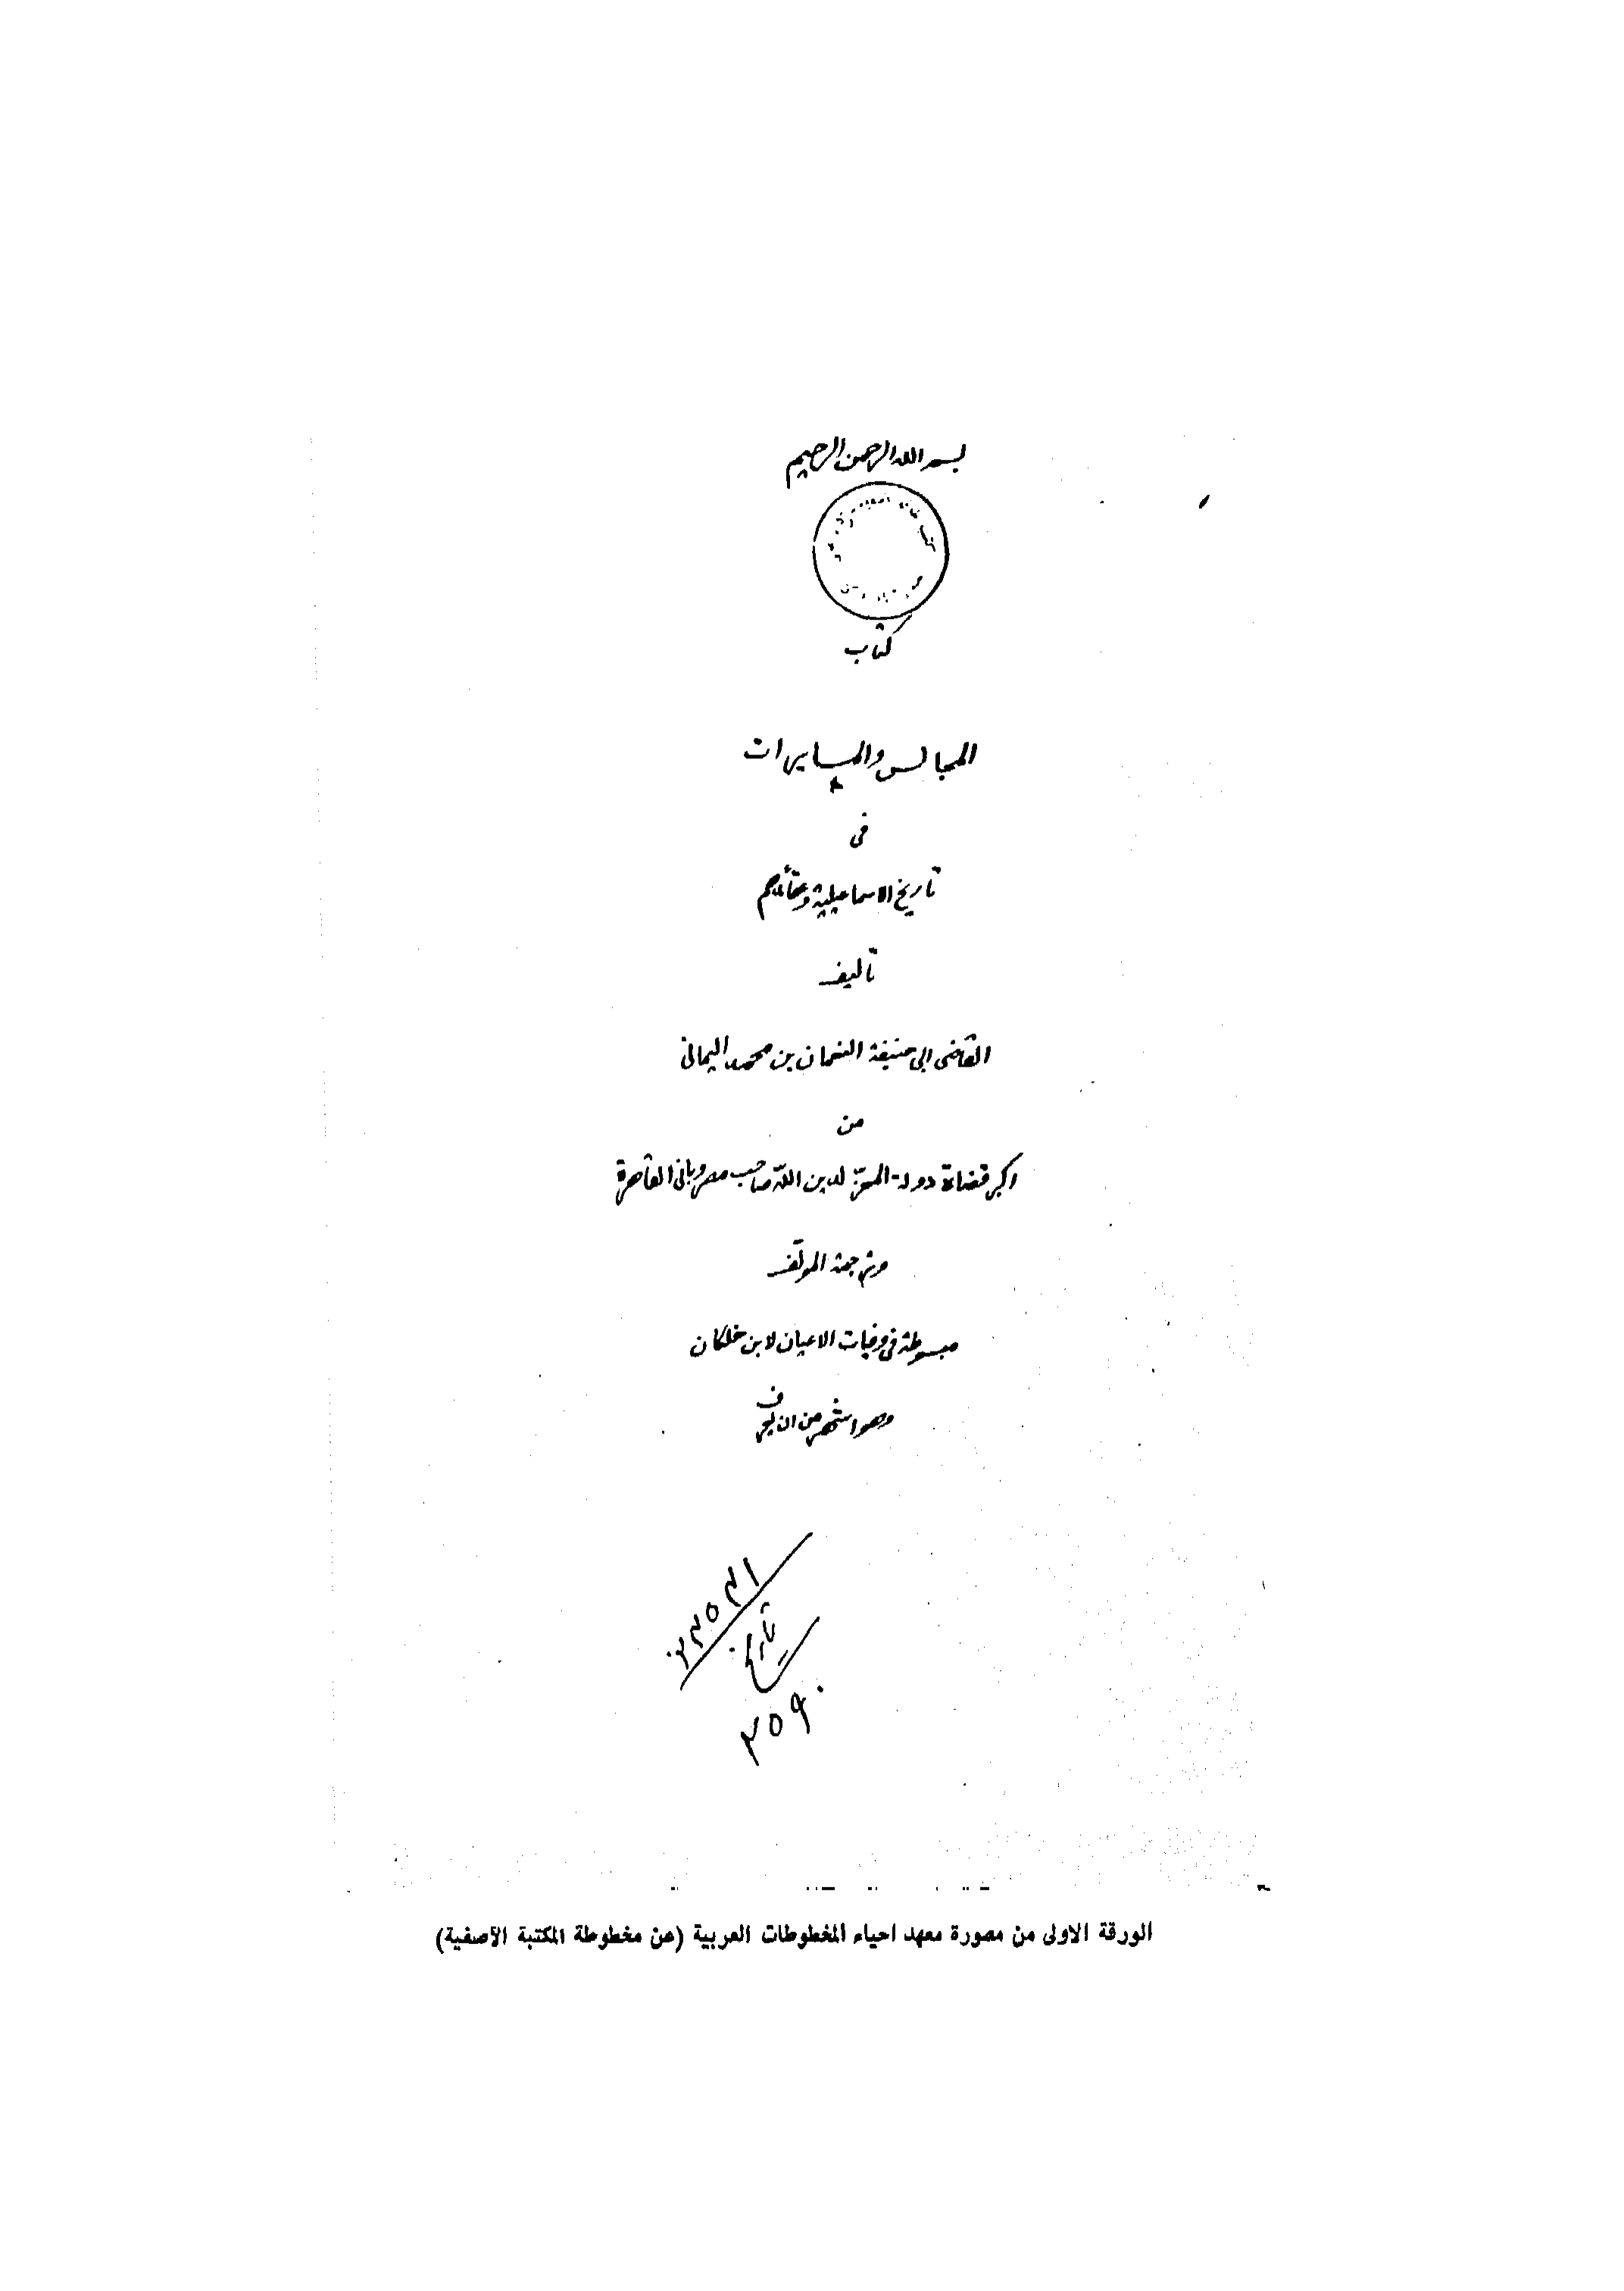 بسم الله الرحمن الرحيم
كتاب
المجالس والمسايرات
فى
تاريخ الاسماعيلية وعقائدهم
تأليف
القاضى ابى حنيفة النعمان بن محمد اليمانى
من
اكبر قضاة دولة المعزّ لدين اللّه صاحب مصر وبانى القاهرة
وترجمة المولّف
مبسوطة فى وفيات الاعيان لابن خلكان
وهو اشهر من ان يعرف
تاريخ
٢٥٩٠
الورقة الاولى من مصورة معهد احياء المخطوطات العربية (عن مخطوطة المكتبة الآصفية)